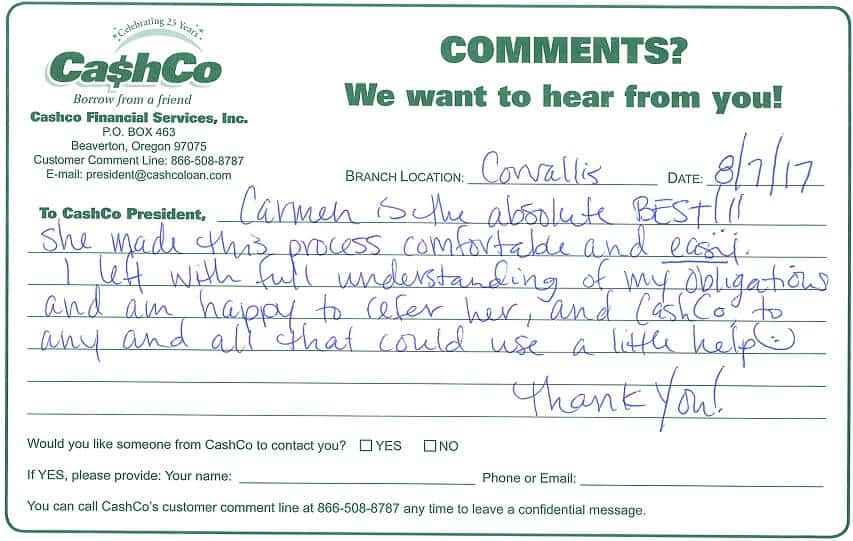 Celebrating 25 Years
Ca$hCo
Borrow from a friend
Cashco Financial Services, Inc.
P.O. BOX 463
Beaverton, Oregon 97075
Customer Comment Line: 866-508-8787
E-mail: president@cashcoloan.com
COMMENTS?
We want to hear from you!
BRANCH LOCATION: Corvallis DATE: 8/7/17
To CashCo President, Carmen is the absolute BEST!!!
She made this process comfortable and easy.
I left with full understanding of my obligations
and am happy to refer her, and CashCo, to
any and all that could use a little help☺
Thank You!
Would you like someone from CashCo to contact you? ☐ YES ☐ NO
If YES, please provide: Your name: Phone or Email:
You can call CashCo's customer comment line at 866-508-8787 any time to leave a confidential message.